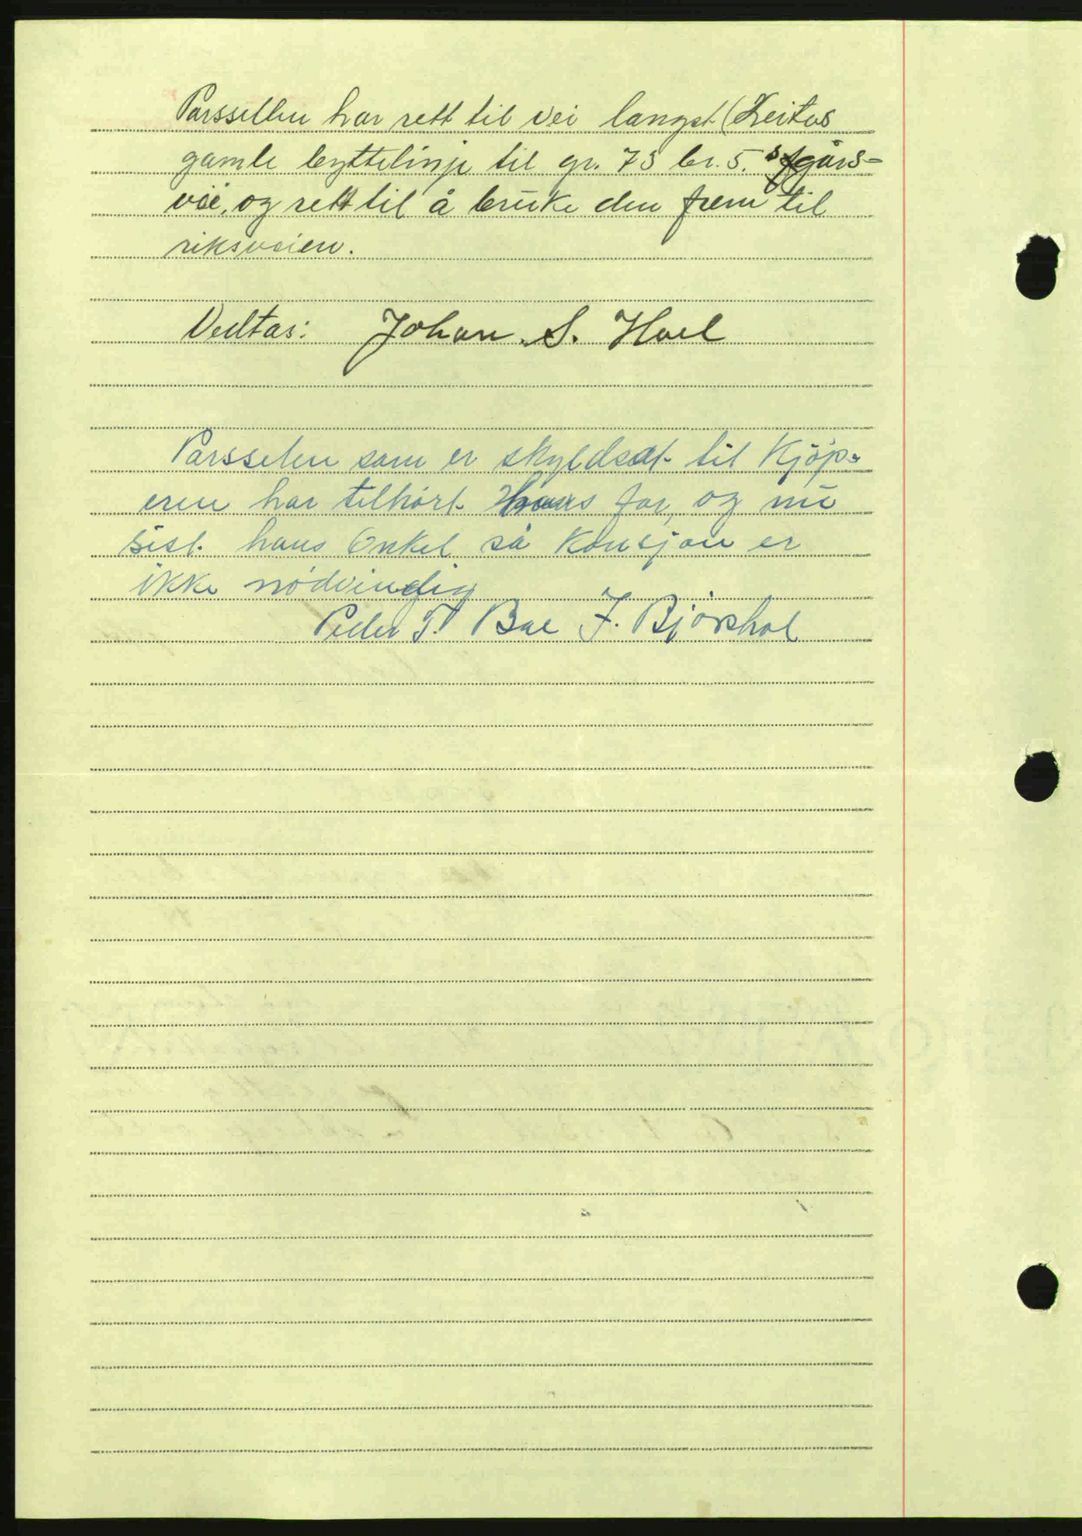 Parssellen har rett til vei langst (Leitus
gamle byttelinje til gr. 73 br. 5.s gårs-
vei, og rett til å bruke den frem til
riksveien.
Vedtas: Johan. S. Hoel
Parsselen som er skyldsat til Kjøp-
eren har tilhørt Hans far, og nu
sist hans Onkel så Konsjon er
ikke nødvindig
Peder T. Bae J. Bjørshol